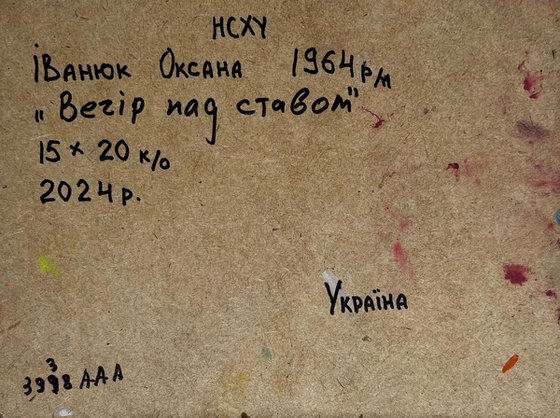 НСХУ
Іванюк Оксана 1964 р/н
„Вечір над ставом"
15 × 20 к/о
2024 р.
Україна
ААА